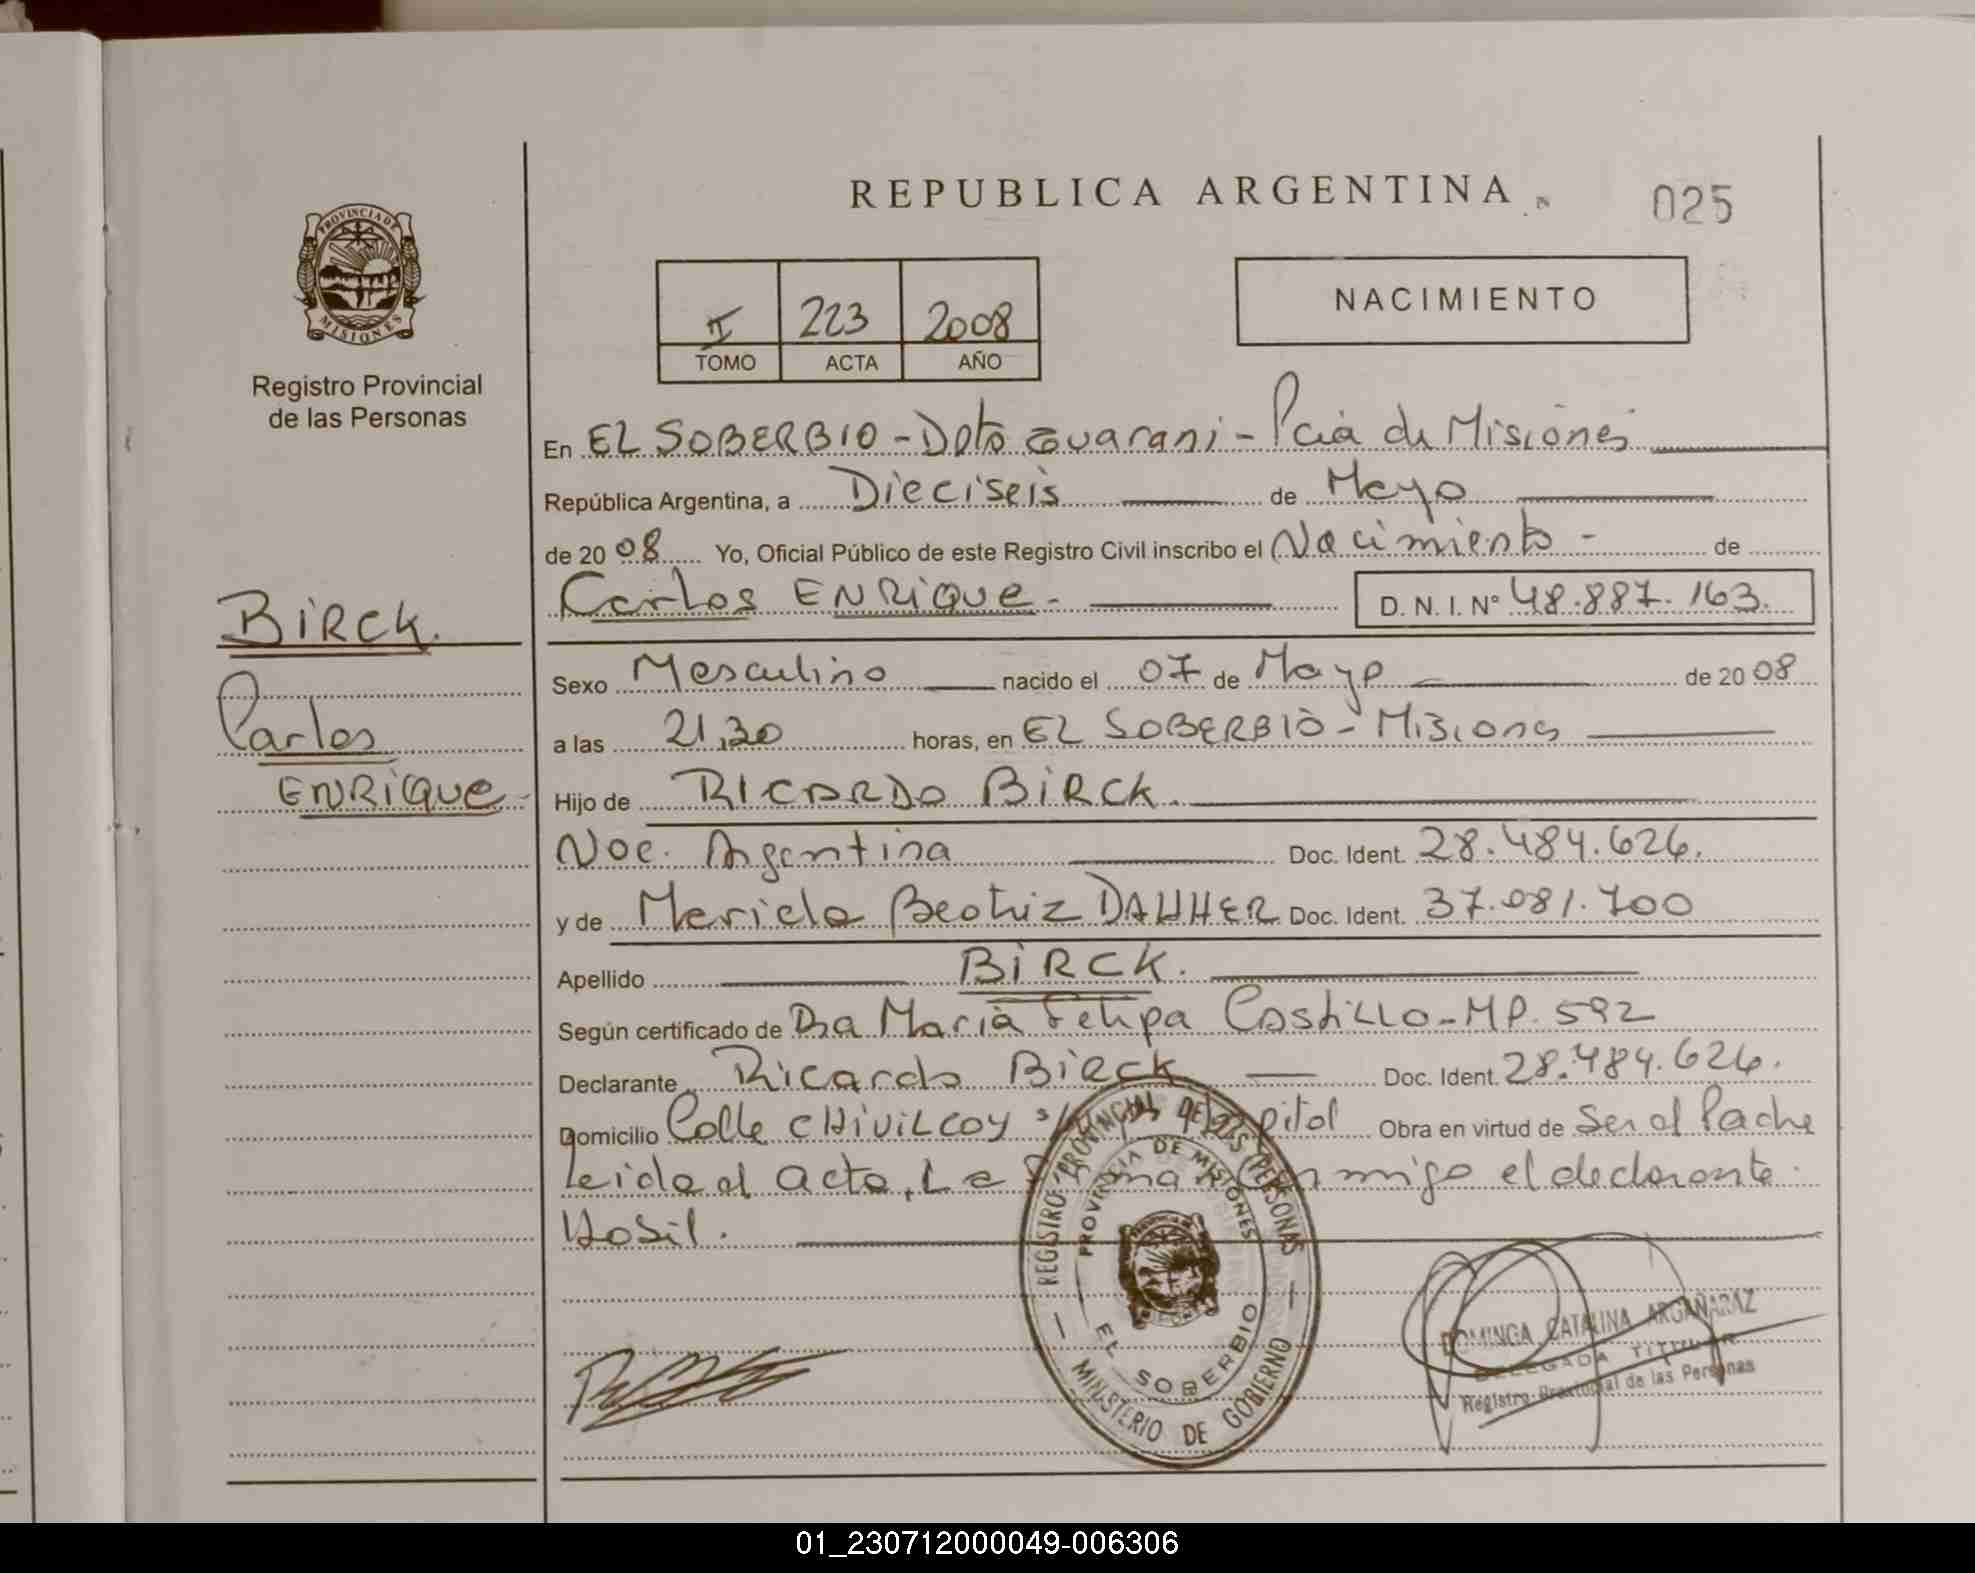 REPUBLICA ARGENTINA
025
PROVINCIA DE
MISIONES
Registro Provincial
de las Personas
II 223 2008
TOMO ACTA AÑO
NACIMIENTO
En EL SOBERBIO - Dpto Guarani - Pcia de Misiones
República Argentina, a Dieciseis de Mayo
de 2008 Yo, Oficial Público de este Registro Civil inscribo el Nacimiento - de
Carlos ENRiQUE - D. N. I. N° 48.887.163.
BiRCK.
Carlos
ENRiQUE -
Sexo Masculino nacido el 07 de Mayo de 2008
a las 21,30 horas, en EL SOBERBIO - Misiones
Hijo de RICARDO BiRCK.
Nac. Argentina Doc. Ident. 28.484.626.
y de Mariela Beatriz DAHMER Doc. Ident. 37.081.700
Apellido BiRCK.
Según certificado de Dra Maria Felipa Castillo - MP. 592
Declarante Ricardo Birck Doc. Ident. 28.484.626.
Domicilio Calle CHiviLcoy Obra en virtud de Ser el Padre
Leida el acta, La conmigo el declarante
Habil.
REGISTRO PROVINCIAL DE LAS PERSONAS
PROVINCIA DE MISIONES
EL SOBERBIO
MINISTERIO DE GOBIERNO
DOMINGA CATALINA ARGAÑARAZ
DELEGADA TITULAR
Registro Provincial de las Personas
01_230712000049-006306